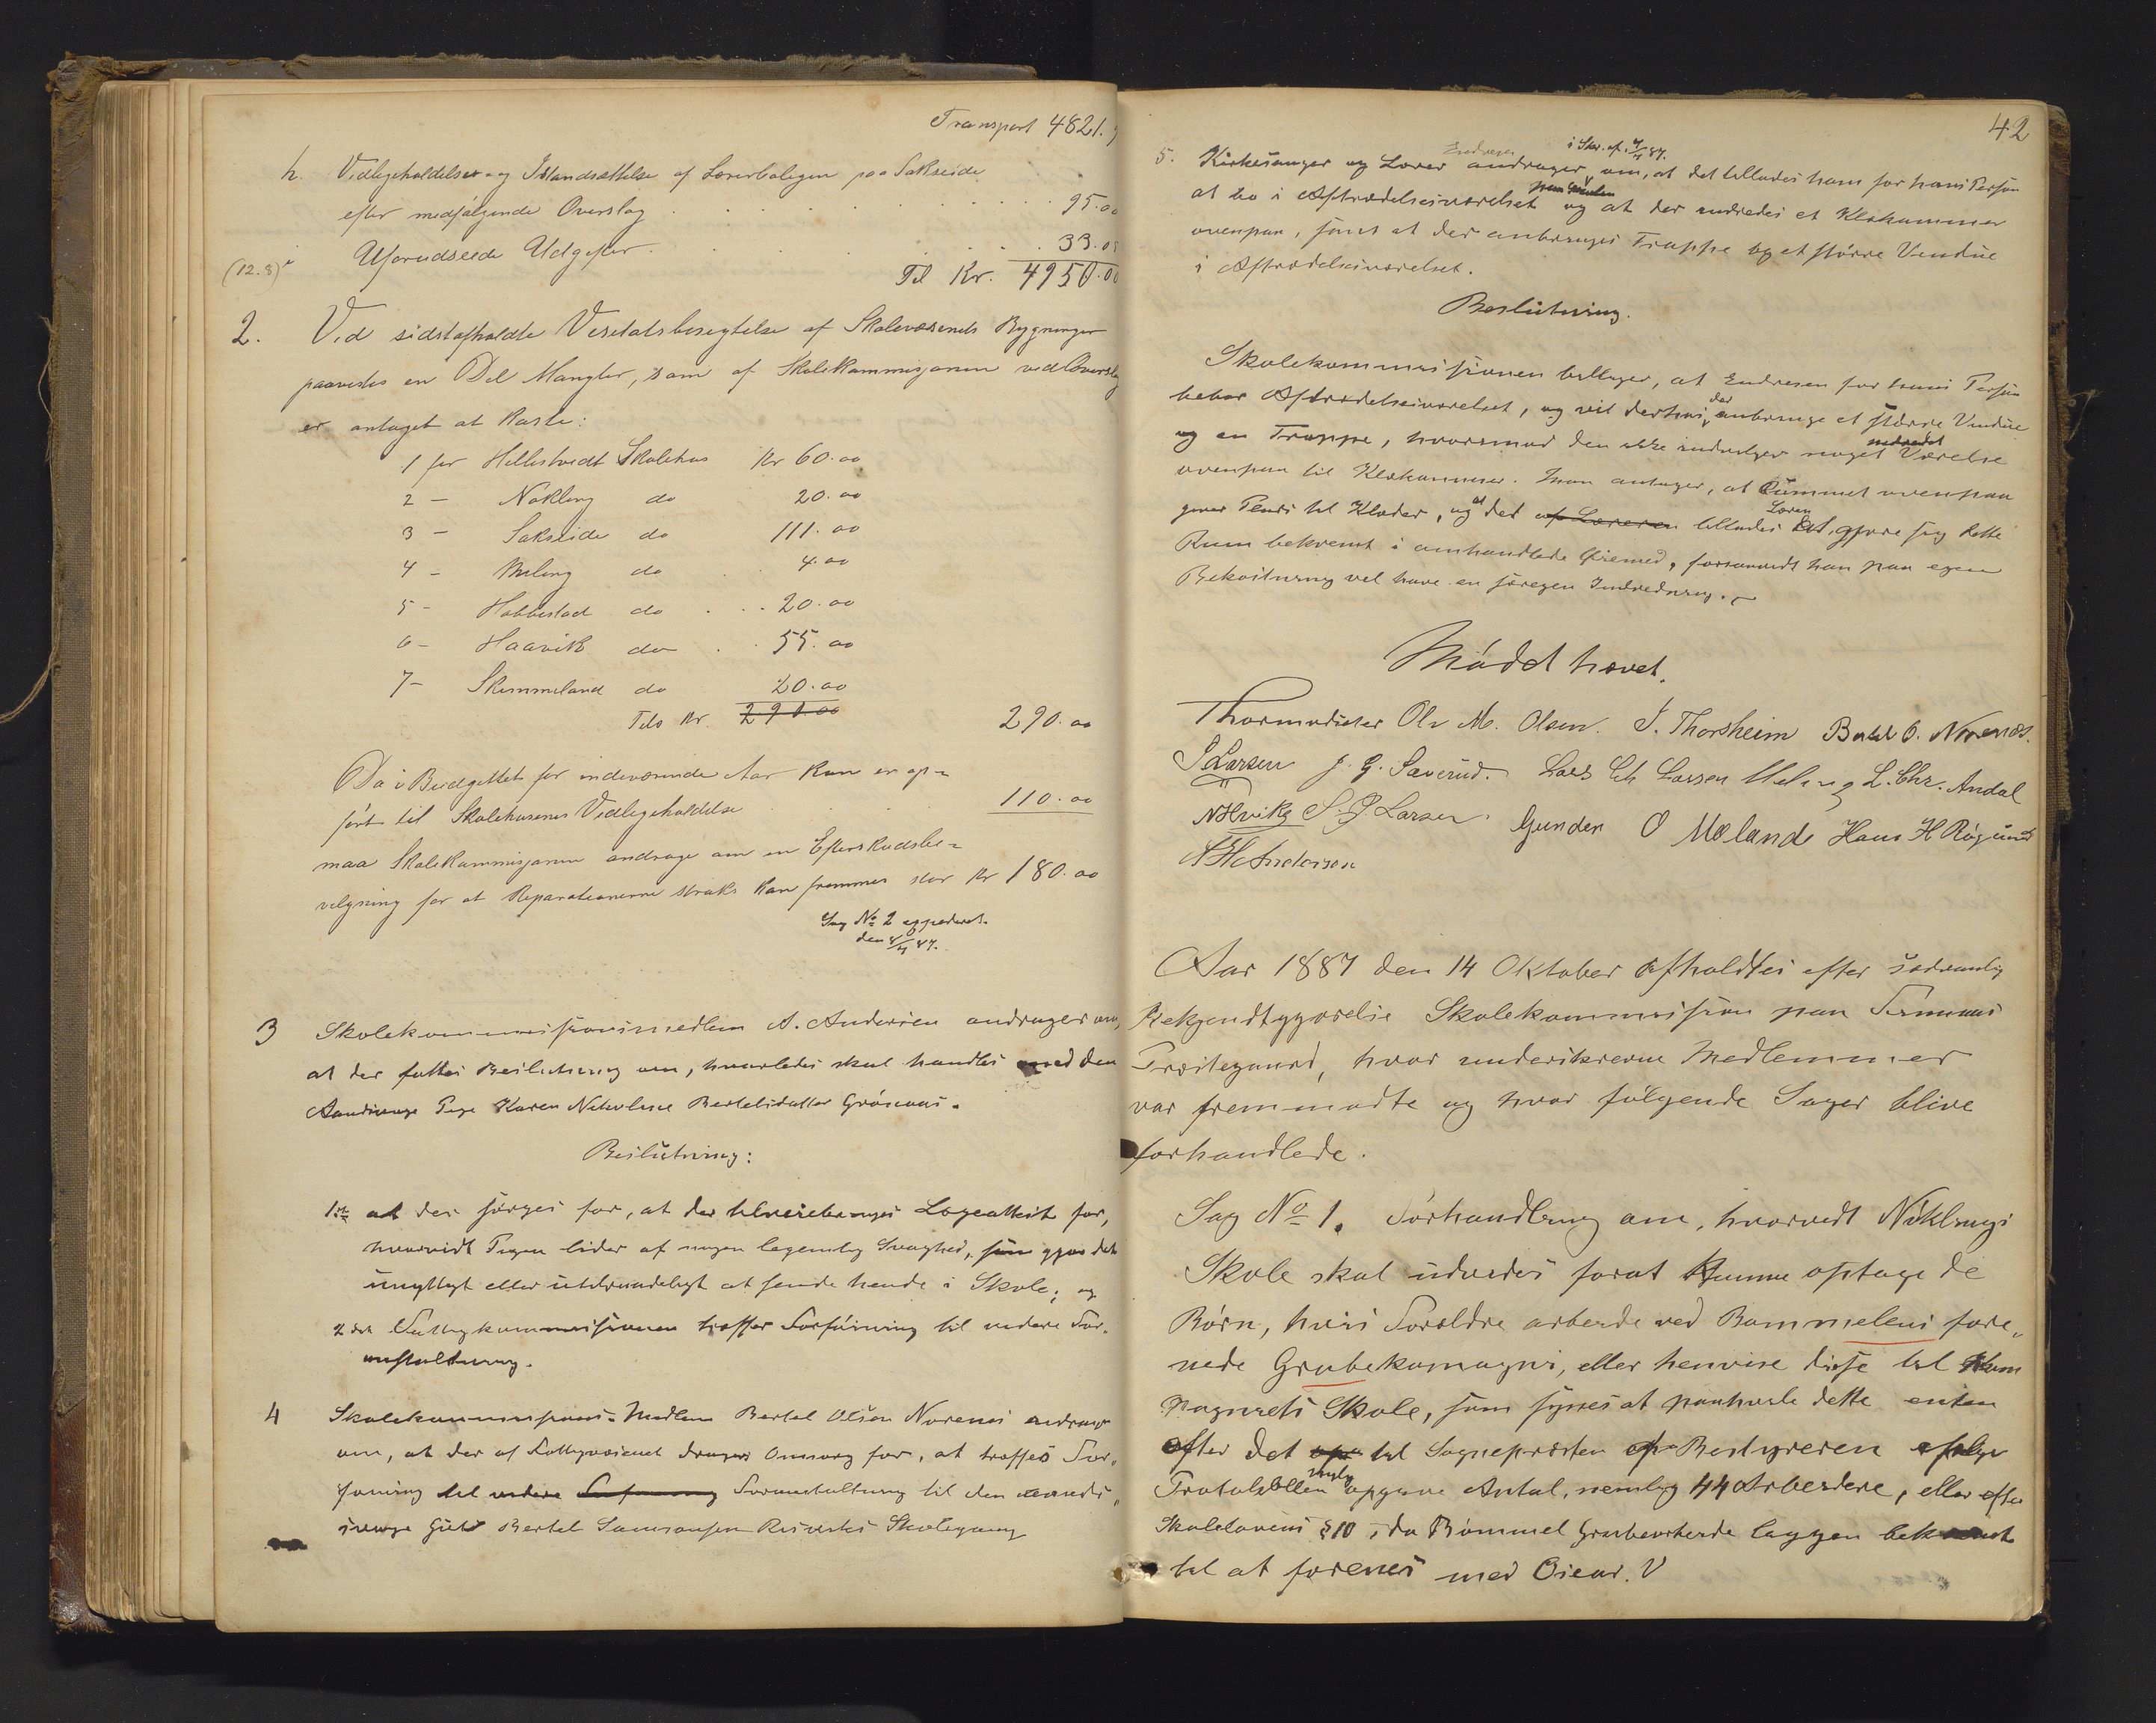 Transport 4821.
h. Vedligeholdelse og Istandsættelse af Lærerboligen paa Sakseide
efter medfølgende Overslag . . . 95.00
(12.8) i Uforudseede Udgifter . . . 33.0
Til Kr. 4950.00
2. Ved sidstafholdte Visitatsbesigtelse af Skolevæsenets Bygninger
paavistes en Del Mangler, som af Skolekommisjonen ved Overslag
er antaget at koste:
1 for Hillestvedt Skolehus Kr 60.00
2 - Nøkling do 20.00
3 - Sakseide do 111.00
4 - Meling do 4.00
5 - Habbestad do . . . 20.00
6 - Haavik do . . 55.00
7 - Skimmeland do 20.00
Tils Kr. 290.00 290.00
Da i Budgettet for indeværende Aar kun er op-
ført til Skolehusenes Vedligeholdelse 110.00
maa Skolekommisjonen andrage om en Efterskudsbe-
vilgning for at Reparationerne straks kan fremmes stor Kr 180.00
Sag No 2 expederet
den 8/4 87.
3 Skolekommissionsmedlem A. Andersen andrager om,
at der fattes Beslutning om, hvorledes skal handles med den
Aandssvage Pige Karen Nikoline Bertelsdatter Grönaas.
Beslutning:
1ste at der sørges for, at der tilveiebringes Lægeattest for,
hvorvidt Pigen lider af nogen legemlig Svaghed, som gjør det
unyttigt eller utilraadeligt at sende hende i Skole; og
2det Fattigkommissionen træffer Forføining til videre For-
anstaltning.
4 Skolekommissions-Medlem Bertel Olsen Norenes andrager
om, at der af Fattigvæsenet drages Omsorg for, at træffes For-
føining til videre Foranstaltning til den aands-
svage Gut Bertel Samsonsen Skolegang
42
5. Kirkesanger og Lærer Endresen andrager i Skr. af 4/4 87. om, at det tillades ham for hans Person
at bo i Aftrædelsesværelset og at der indredes et Klækammer
ovenpaa, samt at der anbringes Trappe og et større Vindue
i Aftrædelsesværelset.
Beslutning.
Skolekommissionen billiger, at Endresen for hans Person
bebor Aftrædelsesværelset, og vil derhos der anbringe et større Vindue
og en Trappe, hvorimod den ikke indvilger noget indredet Værelse
ovenpaa til Klækammer. Man antager, at Rummet ovenpaa
giver Plads til Klæder, og at det af Læreren tillades Læreren at gjøre sig dette
Rum bekvemt i omhandlede Øiemed, forsaavidt han paa egen
Bekostning vil have en særegen Indredning.
Mødet hævet.
Thormodsæter Ole M. Olsen. J. Thorsheim Bertel O. Norenes.
S Larsen J. G. Sæverud. Lars Ch Larsen Meling L. Chr. Andal
N Hvika S. J Larsen. Gunder O Mælande Hans H Røgsund
A H Andersen
Aar 1887 den 14 Oktober afholdtes efter sædvanlig
Bekjendtgjørelse Skolekommission paa Finnaas
Præstegaard, hvor underskrevne Medlemmer
var fremmødte og hvor følgende Sager blive
forhandlede.
Sag No 1. Forhandling om, hvorvidt Nöklings
Skole skal udvides forat kunne optage de
Børn, hvis Forældre arbeide ved Bømmelens fore-
nede Grubekompagni, eller henvise disse til Kom
pagniets Skole, som synes at paahvile dette enten
efter det til Sognepræsten af Bestyreren ifølge
Protokollen opgivne Antal, nemlig 44 Arbeidere, eller efter
Skolelovens § 10, da Bømmel Grubearbeide ligger bekvemt
til at forenes med